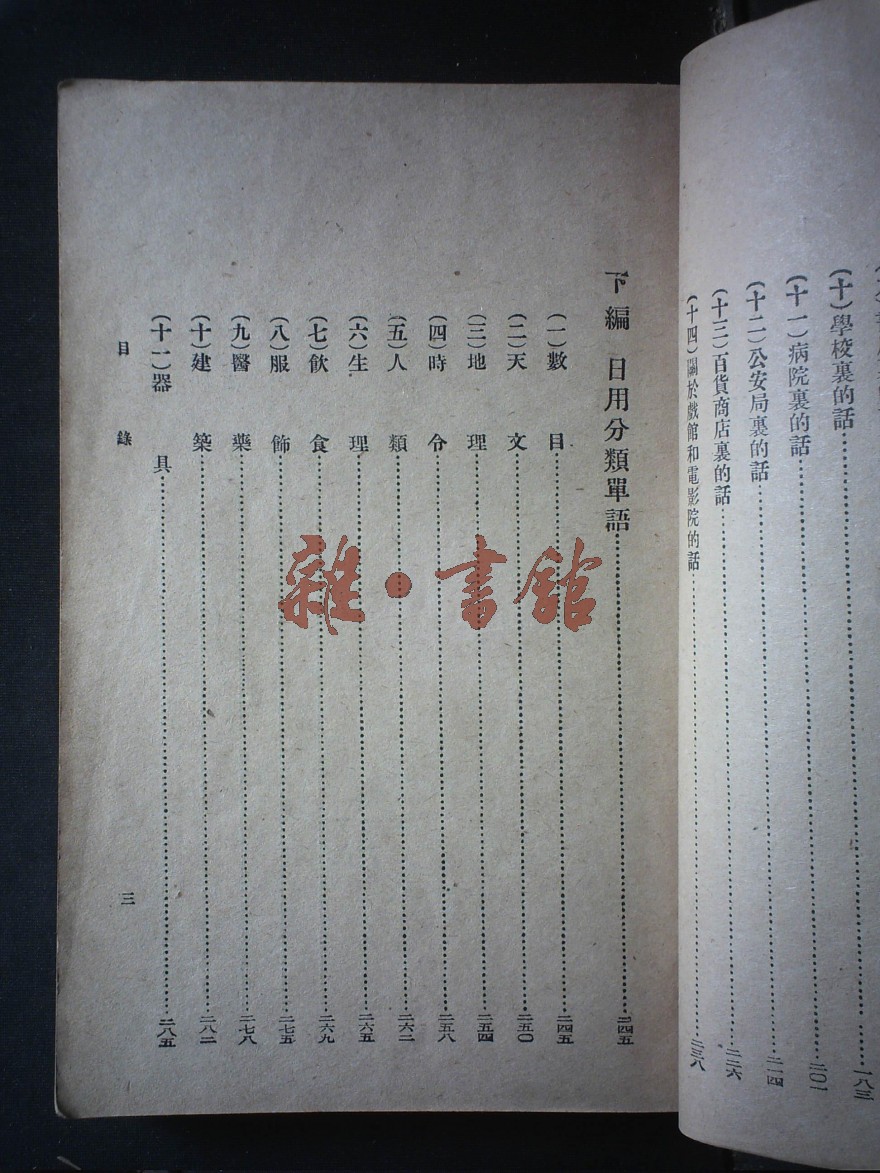 (十)學校裏的話……一八三
(十一)病院裏的話……二〇一
(十二)公安局裏的話……二一四
(十三)百貨商店裏的話……二二六
(十四)關於戲館和電影院的話……二三八
下編 日用分類單語……二四五
(一)數目……二四五
(二)天文……二五〇
(三)地理……二五四
(四)時令……二五八
(五)人類……二六二
(六)生理……二六五
(七)飲食……二六九
(八)服飾……二七五
(九)醫藥……二七八
(十)建築……二八二
(十一)器具……二八五
目錄 三
雜·書館